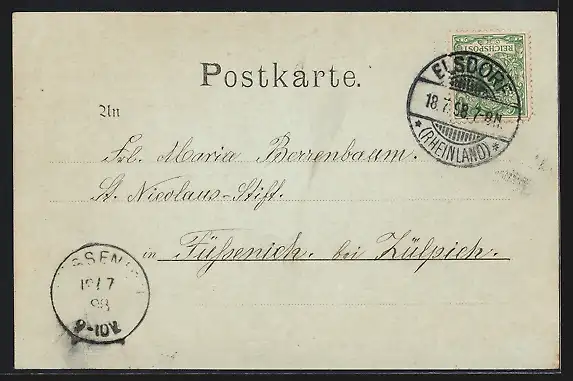 REICHSPOST
Postkarte.
ELSDORF
18.7.98.7-8N.
*(RHEINLAND)*
An
Frl. Maria Berrenbaum.
St. Nicolaus-Stift.
in Füssenich. bei Zülpich.
19/7
98
9-10V.